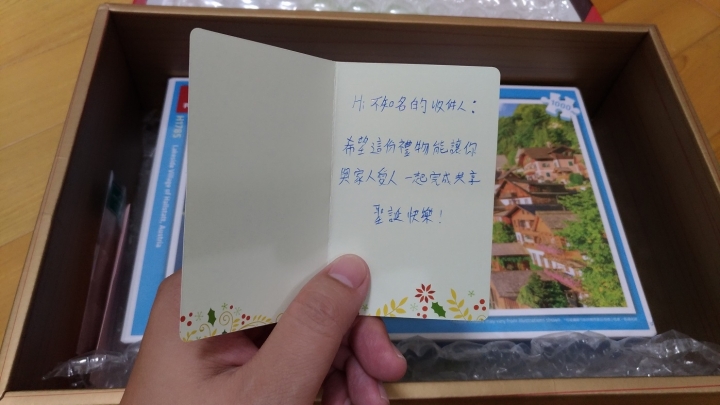 Hi 不知名的收件人：
希望這份禮物能讓你
與家人愛人一起完成共享
聖誕快樂！
H1785
Lakeside Village of Hallstatt, Austria
1000